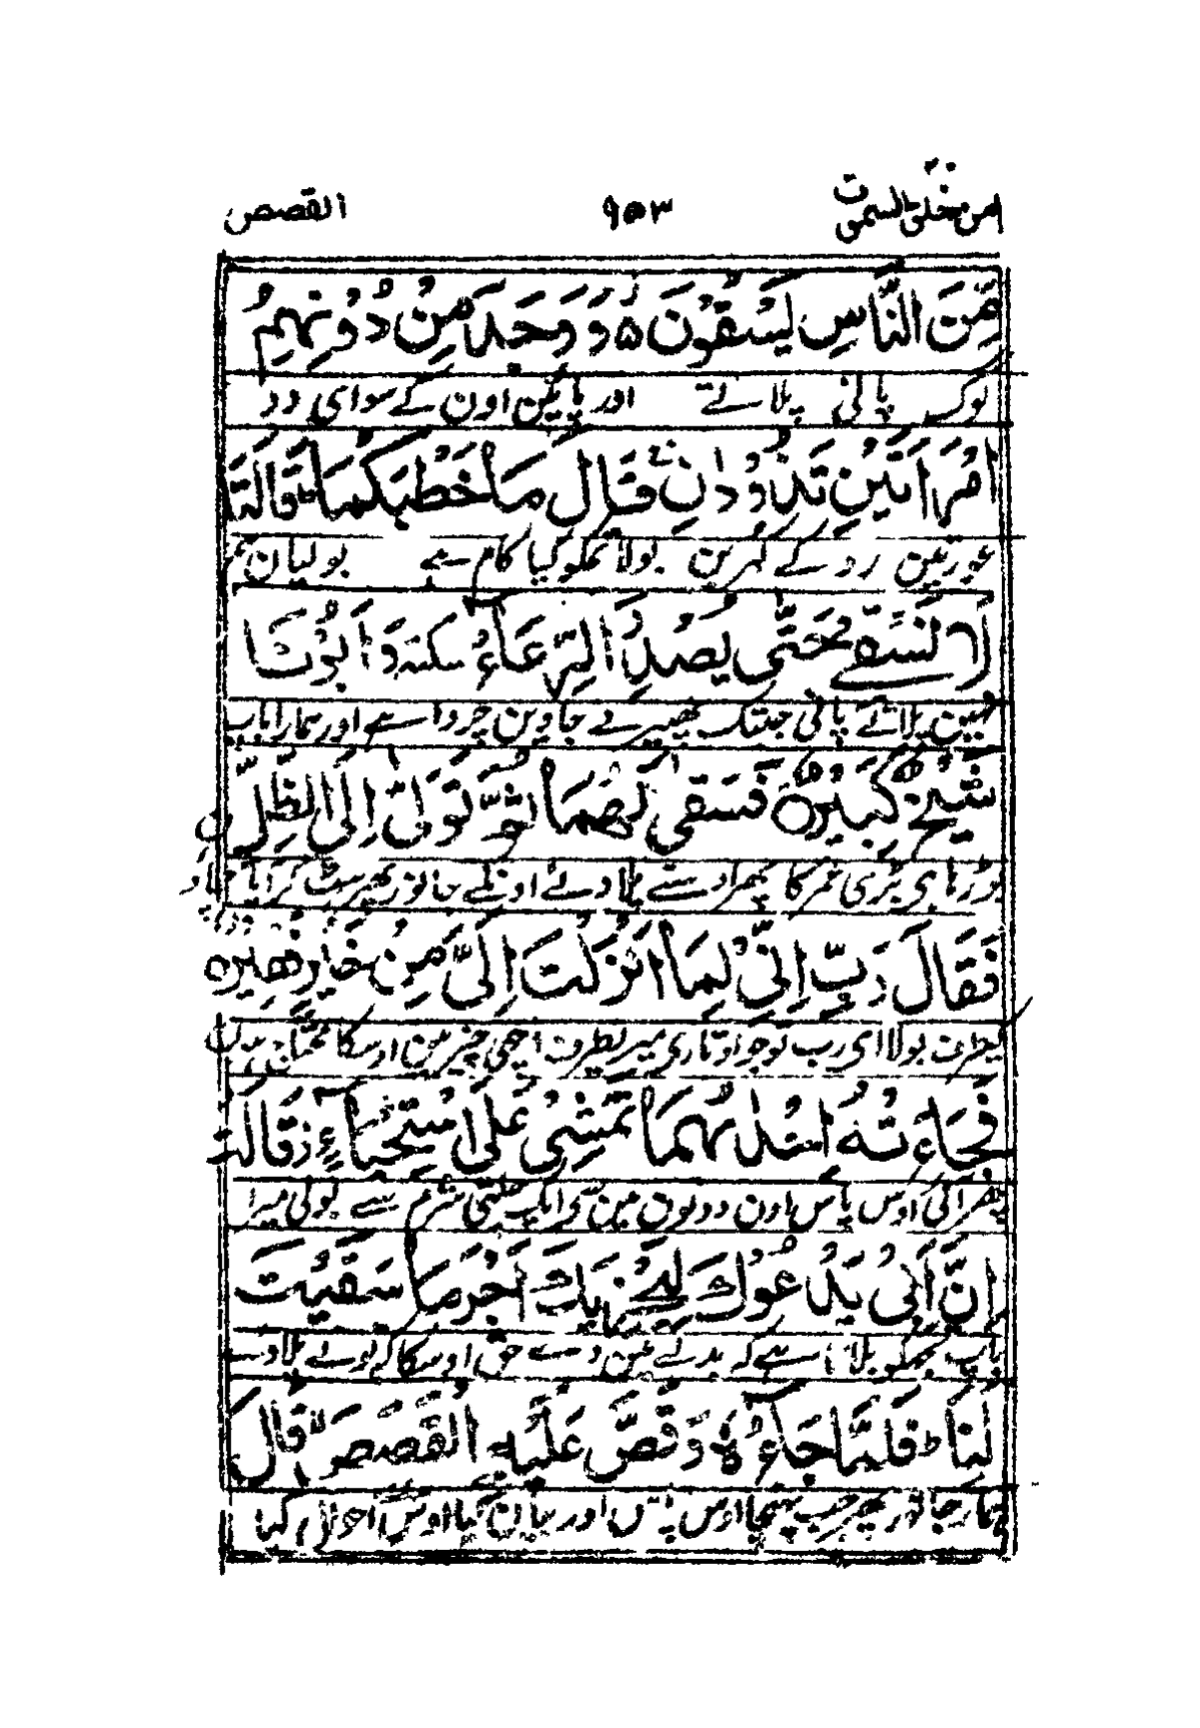 امن خلق السموت ۹۵۳ القصص
مِّنَ النَّاسِ يَسْقُوْنَ ۵ وَوَجَدَ مِنْ دُوْنِهِمُ
لوگ پانی پلاتے اور پائین اون کے سوای دو
امْرَاَتَيْنِ تَذُوْدٰنِ قَالَ مَا خَطْبُكُمَا ط قَالَتَا
عورتین روکے کہڑین بولا تمکو کیا کام ہے بولیان ہم
لَا نَسْقِيْ حَتّٰى يُصْدِرَ الرِّعَآءُ سكتة وَاَبُوْنَا
نہین پلاتے پانی جبتک پھیر لے جاوین چرواہے اور ہمارا باپ
شَيْخٌ كَبِيْرٌ ۵ فَسَقٰى لَهُمَا ثُمَّ تَوَلّٰى اِلَى الظِّلِّ
بوڑہا ہی بڑی عمر کا پھر اوسنے پلا دئے اونکے جانور پھر ہٹ کر آیا
فَقَالَ رَبِّ اِنِّيْ لِمَا اَنْزَلْتَ اِلَيَّ مِنْ خَيْرٍ فَقِيْرٌ ۵
طرف بولا ای رب تو جو اوتاری میریطرف اچھی چیز مین اوسکا محتاج ہون
فَجَآءَتْهُ اِحْدٰىهُمَا تَمْشِيْ عَلَى اسْتِحْيَآءٍ ز قَالَتْ
پھر آئی اوس پاس اون دونون مین سے ایک چلتی شرم سے بولی میرا
اِنَّ اَبِيْ يَدْعُوْكَ لِيَجْزِيَكَ اَجْرَ مَا سَقَيْتَ
باپ تجھکو بلاتا ہے کہ بدلے مین دے حق اوسکا کہ تونے پلا دئے
لَنَا ط فَلَمَّا جَآءَهٗ وَقَصَّ عَلَيْهِ الْقَصَصَ لا قَالَ
ہمارے جانور پھر جب پہنچا اوس پاس اور بیان کیا اوس احوال کہا